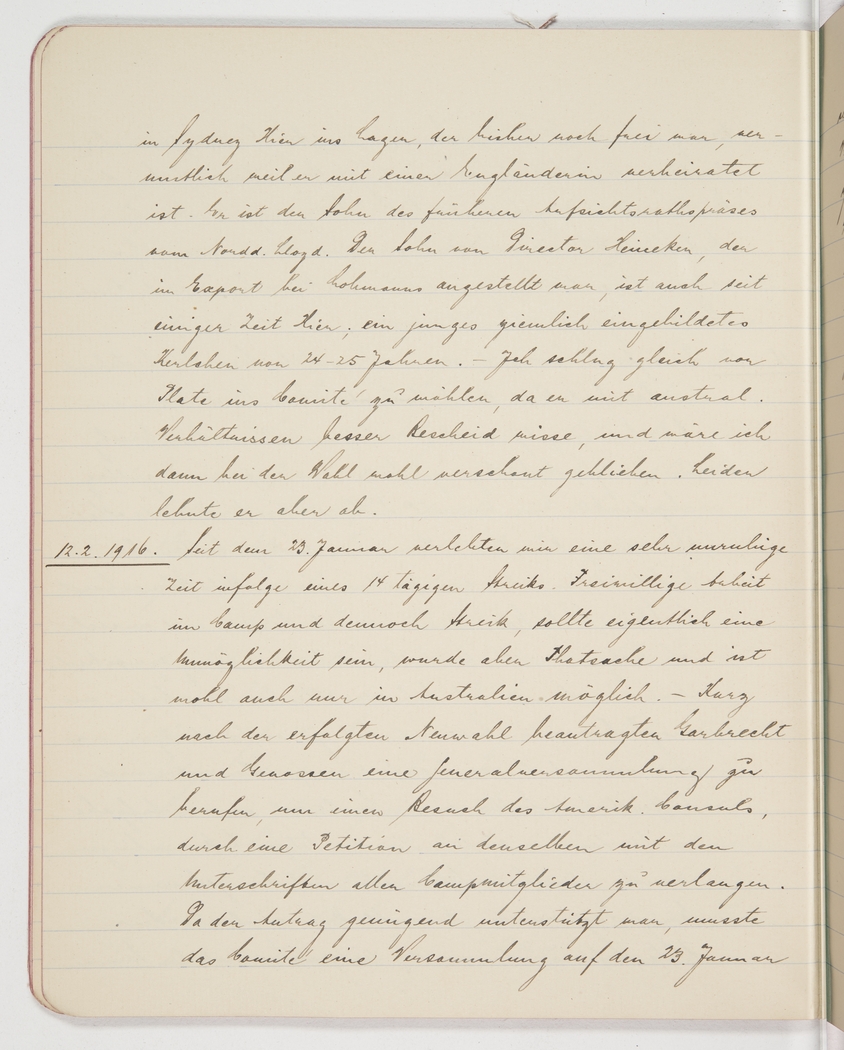 in Sydney Hier ins Lager, der bisher noch frei war, ver-
mutlich weil er mit einer Engländerin verheiratet
ist. Er ist der Sohn des früheren Aufsichtsrathspräses
vom Nordd. Lloyd. Der Sohn von Director Heineken, der
im Export bei Lohmanns angestellt war, ist auch seit
einiger Zeit Hier; ein junges ziemlich eingebildetes
Kerlchen von 24-25 Jahren. – Ich schlug gleich von
Plate ins Comité zu wählen, da er mit austral.
Verhältnissen besser Bescheid wisse, und wäre ich
dann bei der Wahl wohl verschont geblieben. Leider
lehnte er aber ab.
12.2.1916. Seit dem 23. Januar verlebten wir eine sehr unruhige
Zeit infolge eines 14 tägigen Streiks. Freiwillige Arbeit
im Camp und dennoch Streik, sollte eigentlich eine
Unmöglichkeit sein, wurde aber Thatsache und ist
wohl auch nur in Australien möglich. – Kurz
nach der erfolgten Neuwahl beantragten Garbrecht
und Genossen eine Generalversammlung zu
berufen, um einen Besuch des Amerik. Consuls,
durch eine Petition an denselben mit den
Unterschriften aller Campmitglieder zu verlangen.
Da der Antrag genügend unterstützt war, musste
das Comité eine Versammlung auf den 23. Januar